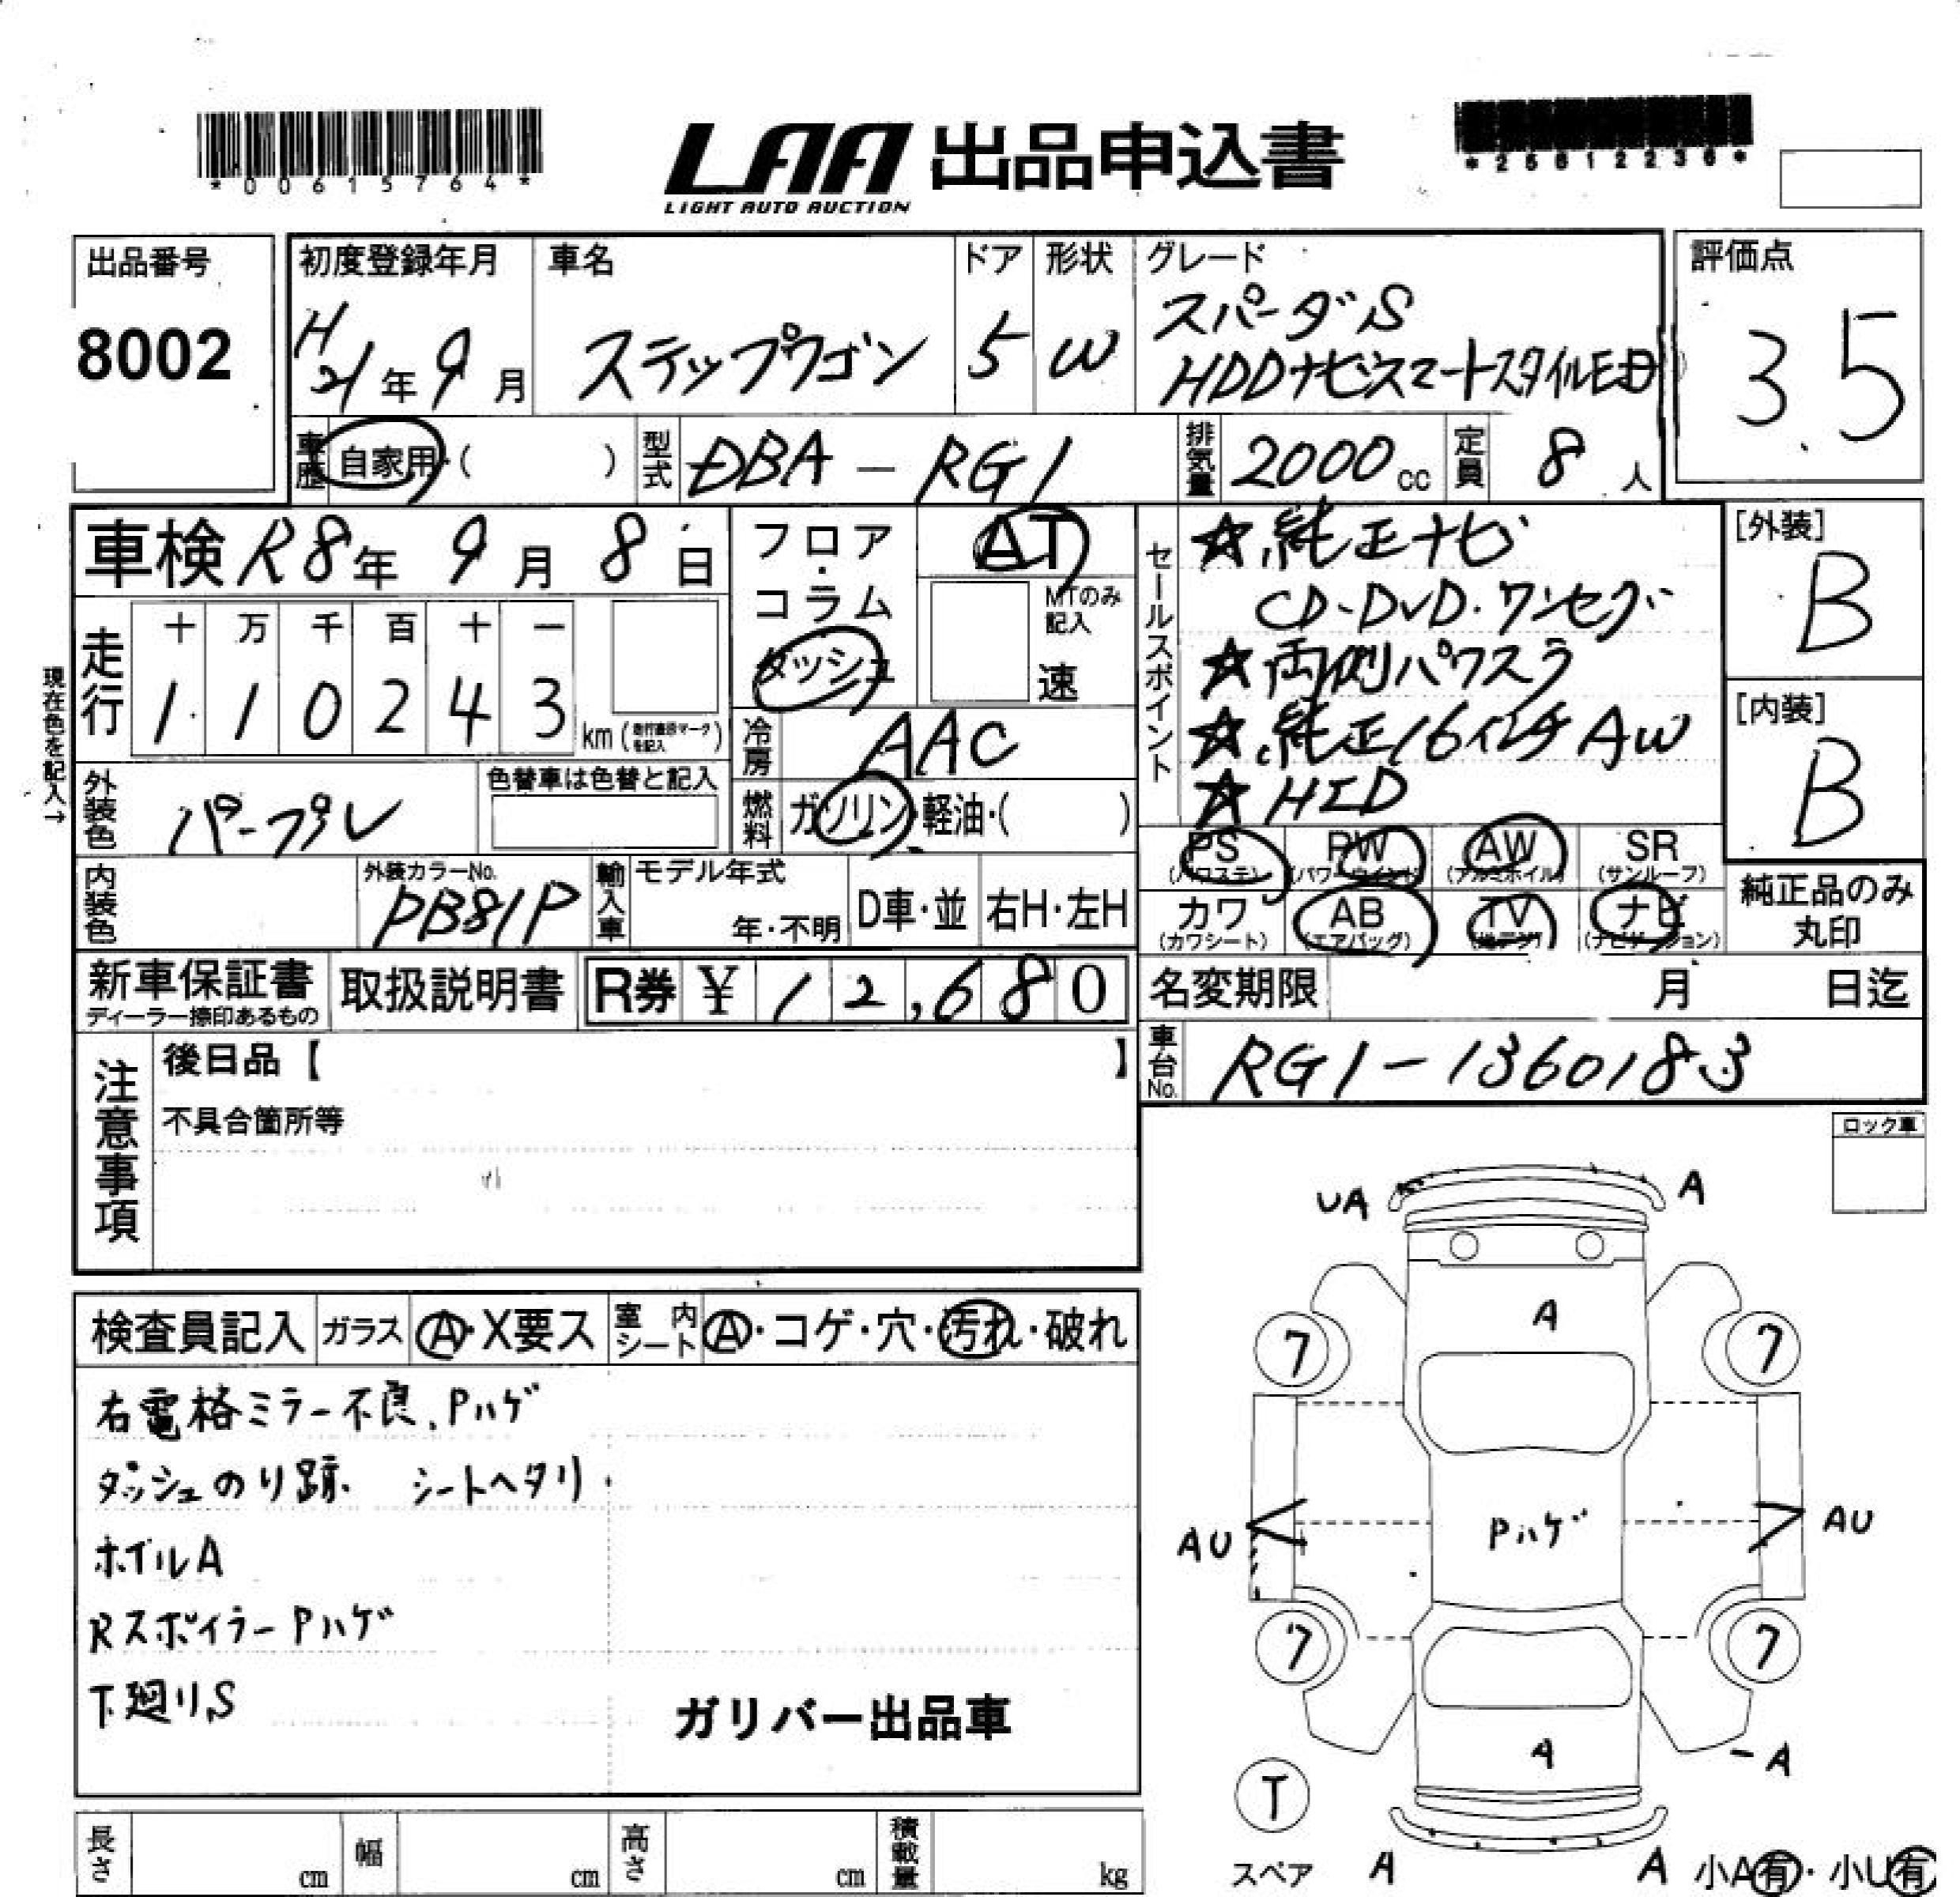 *00615764*
LAA 出品申込書
LIGHT AUTO AUCTION
*25812236*
出品番号
8002
初度登録年月
H21年9月
車名
ステップワゴン
ドア
5
形状
W
グレード
スパーダS
HDDナビスマートスタイルED
評価点
3.5
車歴
自家用・( )
型式
DBA-RG1
排気量
2000cc
定員
8人
車検 R8年9月8日
現在色を記入→
走行
十 万 千 百 十 一
1 1 0 2 4 3 km
フロア・コラム
ダッシュ
AT
MTのみ記入
速
冷房
AAC
外装色
パープル
色替車は色替と記入
燃料
ガソリン・軽油・( )
セールスポイント
☆純正ナビ
CD・DVD・ワンセグ
☆両側パワスラ
☆純正16インチAW
☆HID
[外装]
B
[内装]
B
PS (パワステ) PW (パワーウインド) AW (アルミホイル) SR (サンルーフ)
カワ (カワシート) AB (エアバッグ) TV (地デジ) ナビ (ナビゲーション)
純正品のみ丸印
内装色
外装カラーNo.
PB81P
輸入車
モデル年式
年・不明
D車・並
右H・左H
新車保証書
ディーラー捺印あるもの
取扱説明書
R券 ¥12,680
名変期限 月 日迄
車台No.
RG1-1360183
注意事項
後日品【 】
不具合箇所等
ロック車
検査員記入 ガラス A・X要ス 室内シート A・コゲ・穴・汚れ・破れ
右電格ミラー不良、Pハゲ
ダッシュのり跡、シートヘタリ
ホイルA
RスポイラーPハゲ
下廻りS
ガリバー出品車
UA A
A
7 7
AU Pハゲ AU
7 7
A
-A
T
スペア
A A
小A有・小U有
長さ cm 幅 cm 高さ cm 積載量 kg